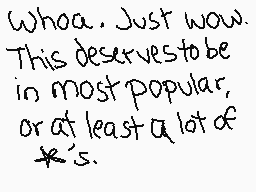 Whoa. Just wow.
This deserves to be
in most popular,
or at least a lot of
★'s.